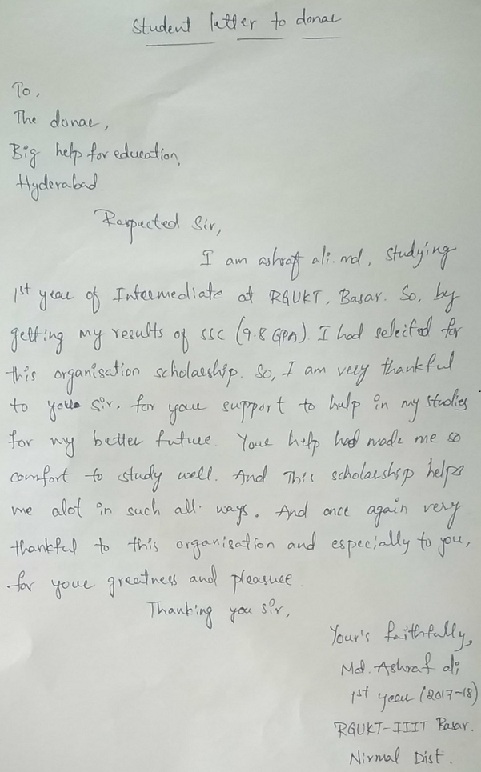 Student letter to donar
To,
The donar,
Big help for education,
Hyderabad
Respected Sir,
I am ashraf ali.md, studying
1st year of Intermediate at RGUKT, Basar. So, by
getting my results of SSC (9.8 GPA). I had selected for
this organisation scholarship. So, I am very thankful
to your Sir. for your support to help in my studies
for my better future. Your help had made me so
comfort to study well. And This scholarship helps
me alot in such all ways. And once again very
thankful to this organisation and especially to you,
for your greatness and pleasure
Thanking you sir,
Your's faithfully,
Md. Ashraf ali
1st year (2017-18)
RGUKT-IIIT Basar.
Nirmal Dist.